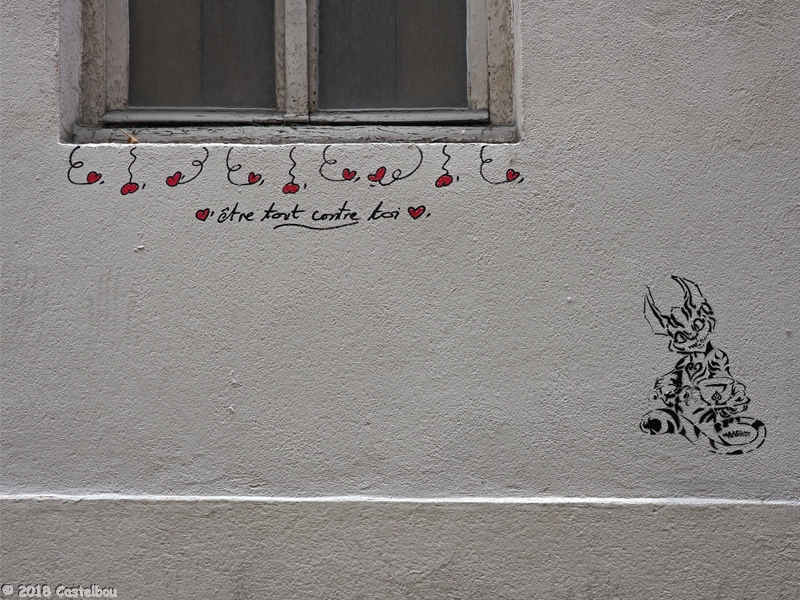 être tout contre toi
© 2018 Castelbou